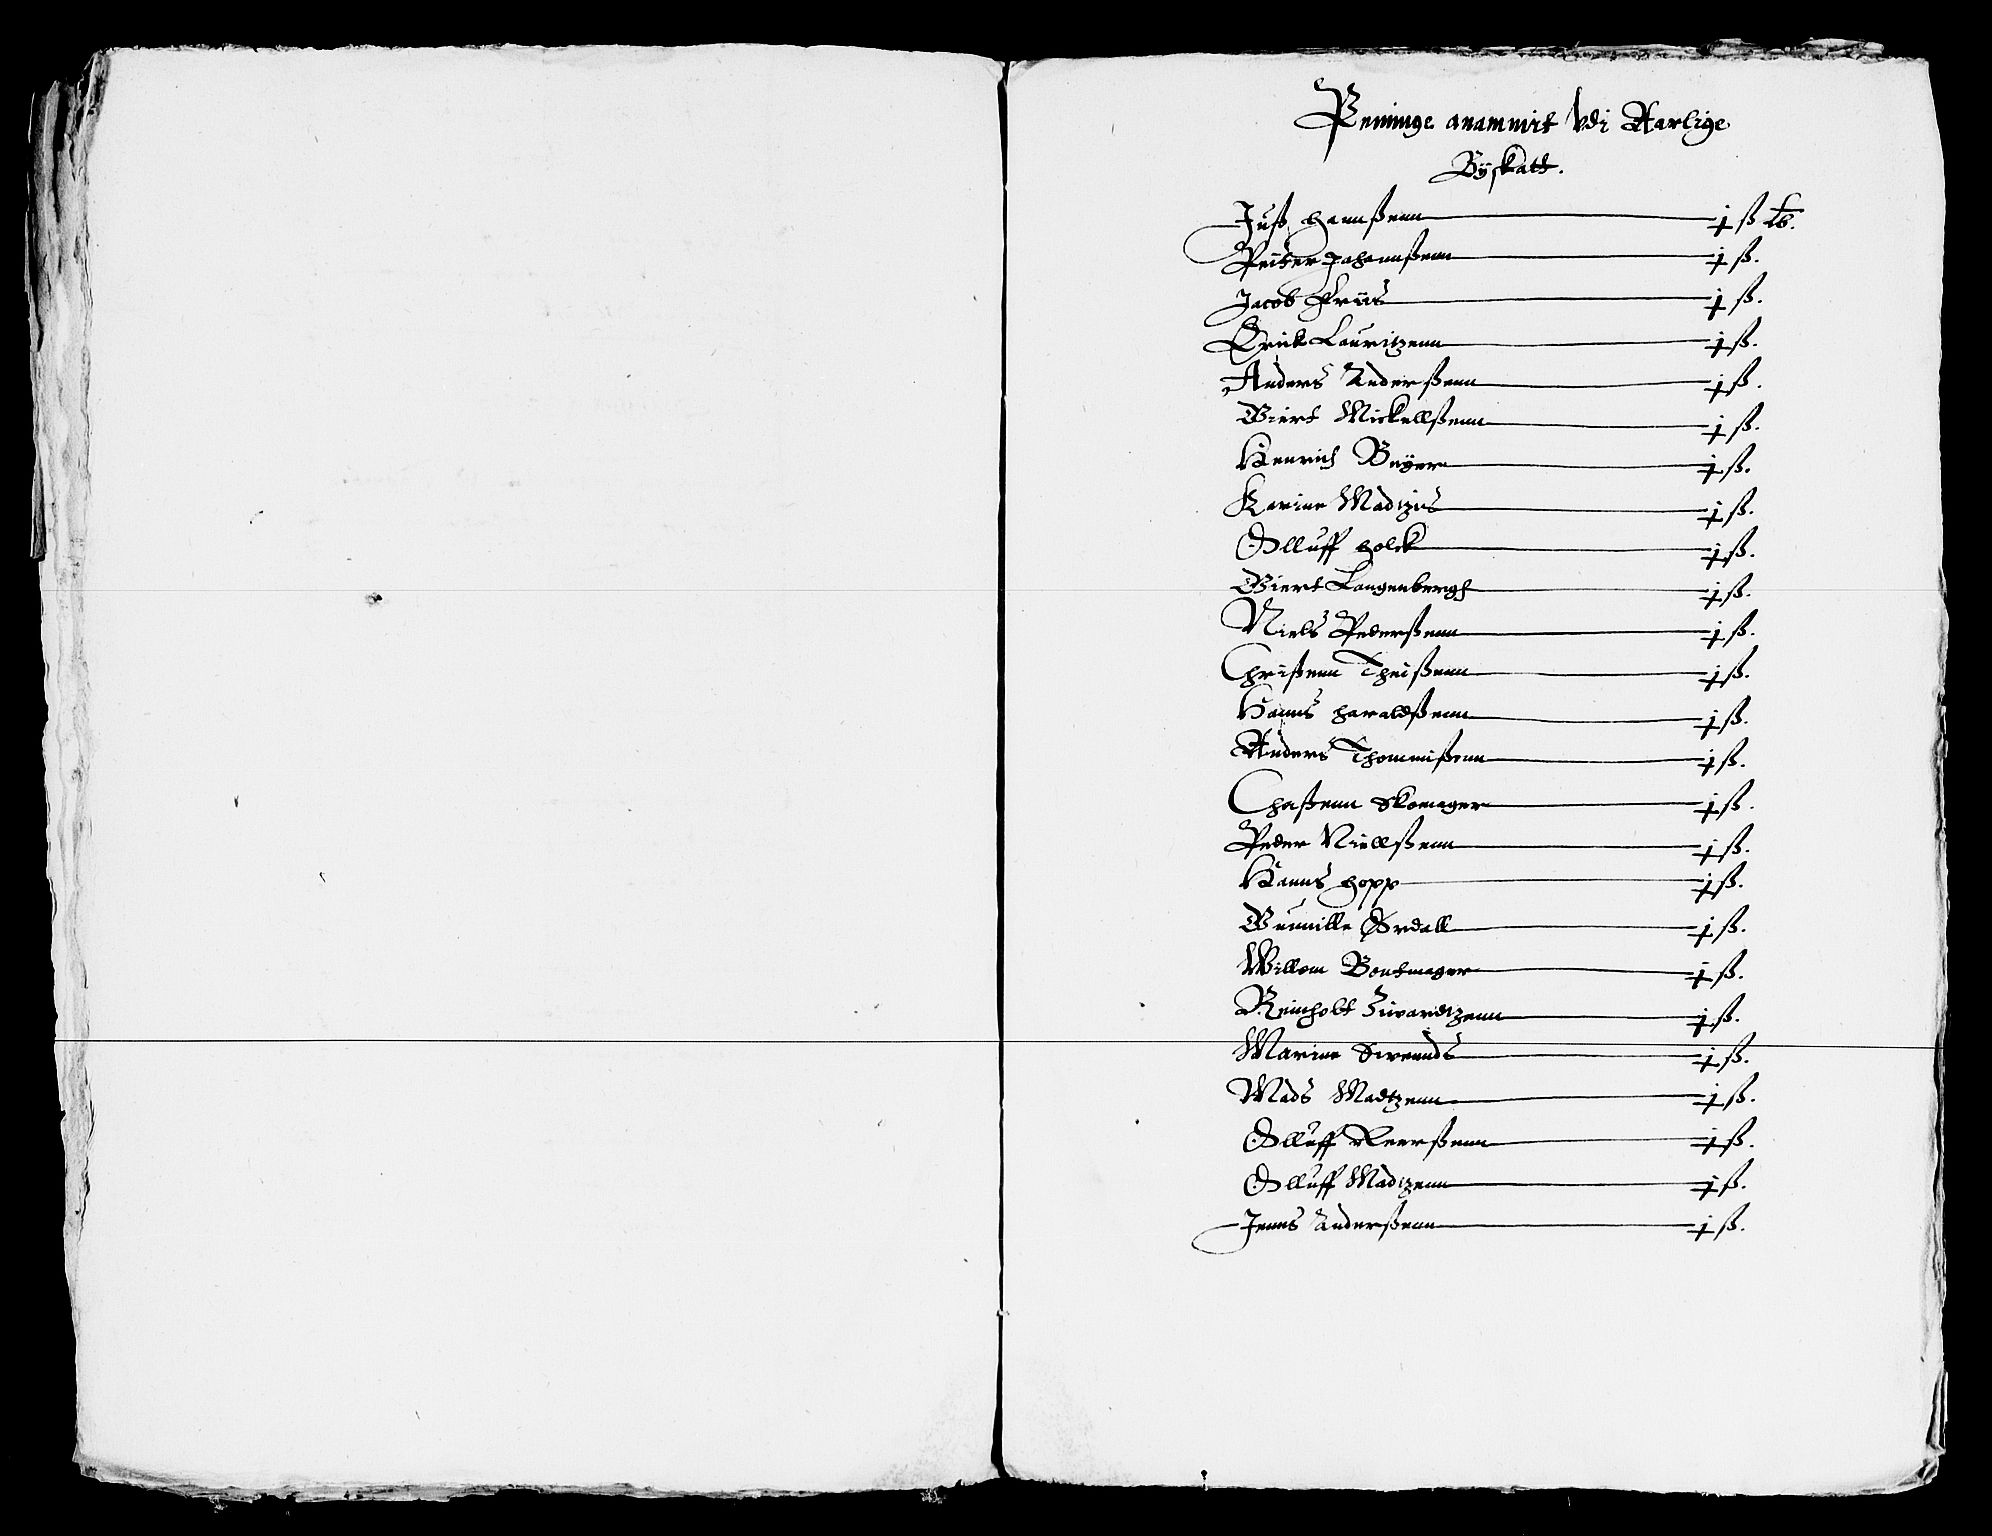 Peninge anammit Vdi Aarlige
Byskatt.
Juß Hannßenn j ß lb.
Peiter Johannßenn j ß.
Jacob Friis j ß.
Erick Lauritzenn j ß.
Anders Anderßenn j ß.
Giert Mickellßenn j ß.
Henrich Beyer j ß.
Karine Madtzis j ß.
Olluff Holck j ß.
Giert Langenbergh j ß.
Niels Pederßenn j ß.
Chrißenn Theißenn j ß.
Hanns Haraldßenn j ß.
Anders Thommißenn j ß.
Chaßenn Skomager j ß.
Peder Niellßenn j ß.
Hanns Hopp j ß.
Gunnille Ørdall j ß.
Willom Bontmager j ß.
Reinholt Ziwardtzenn j ß.
Marine Swennds j ß.
Mads Madtzenn j ß.
Olluff Reerßenn j ß.
Olluff Madtzenn j ß.
Jenns Anderßenn j ß.